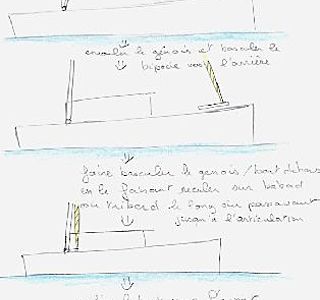 enrouler le génois et basculer le
bipode vers l'arrière
faire basculer le génois / bout dehors
en le faisant reculer sur babord
ou tribord le long sur passavant
jusqu'à l'articulation